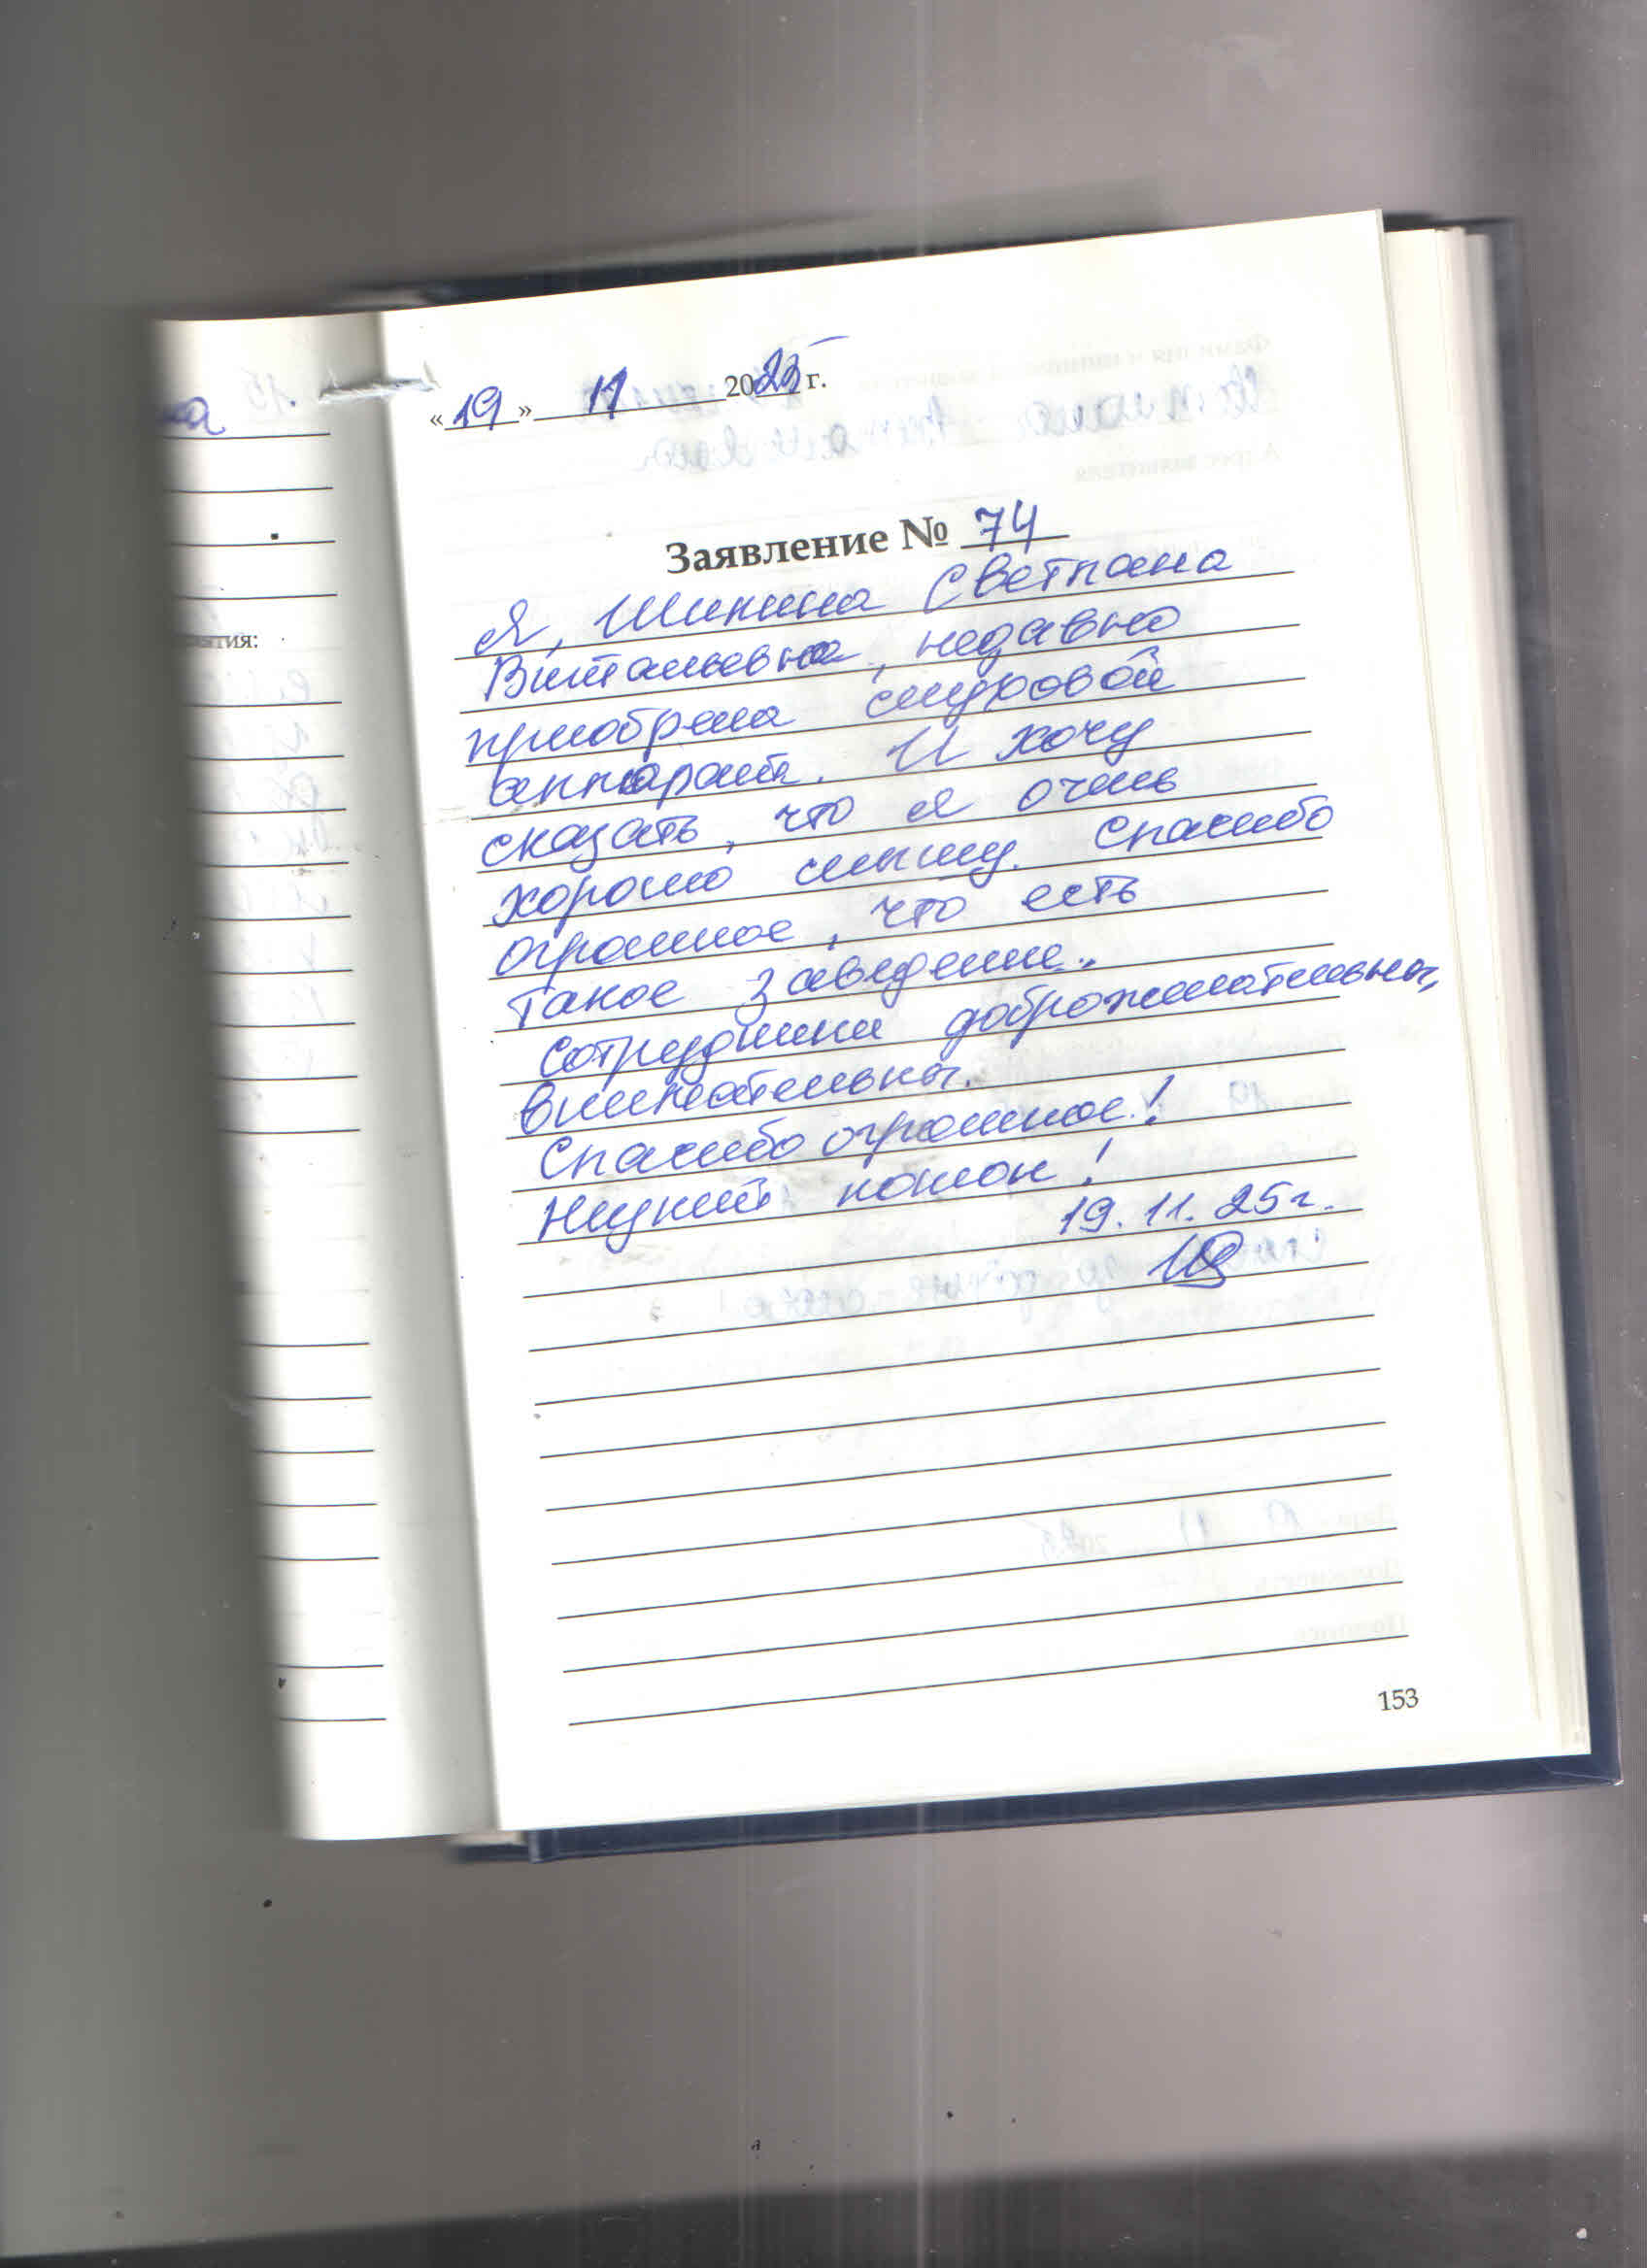 «19» 11 2025 г.
Заявление № 74
Я, Шинина Светлана
Витальевна, недавно
приобрела слуховой
аппарат. И хочу
сказать, что я очень
хорошо слышу. Спасибо
огромное, что есть
такое заведение.
Сотрудники доброжелательны,
внимательны.
Спасибо огромное!
Низкий поклон!
19.11.25г.
153